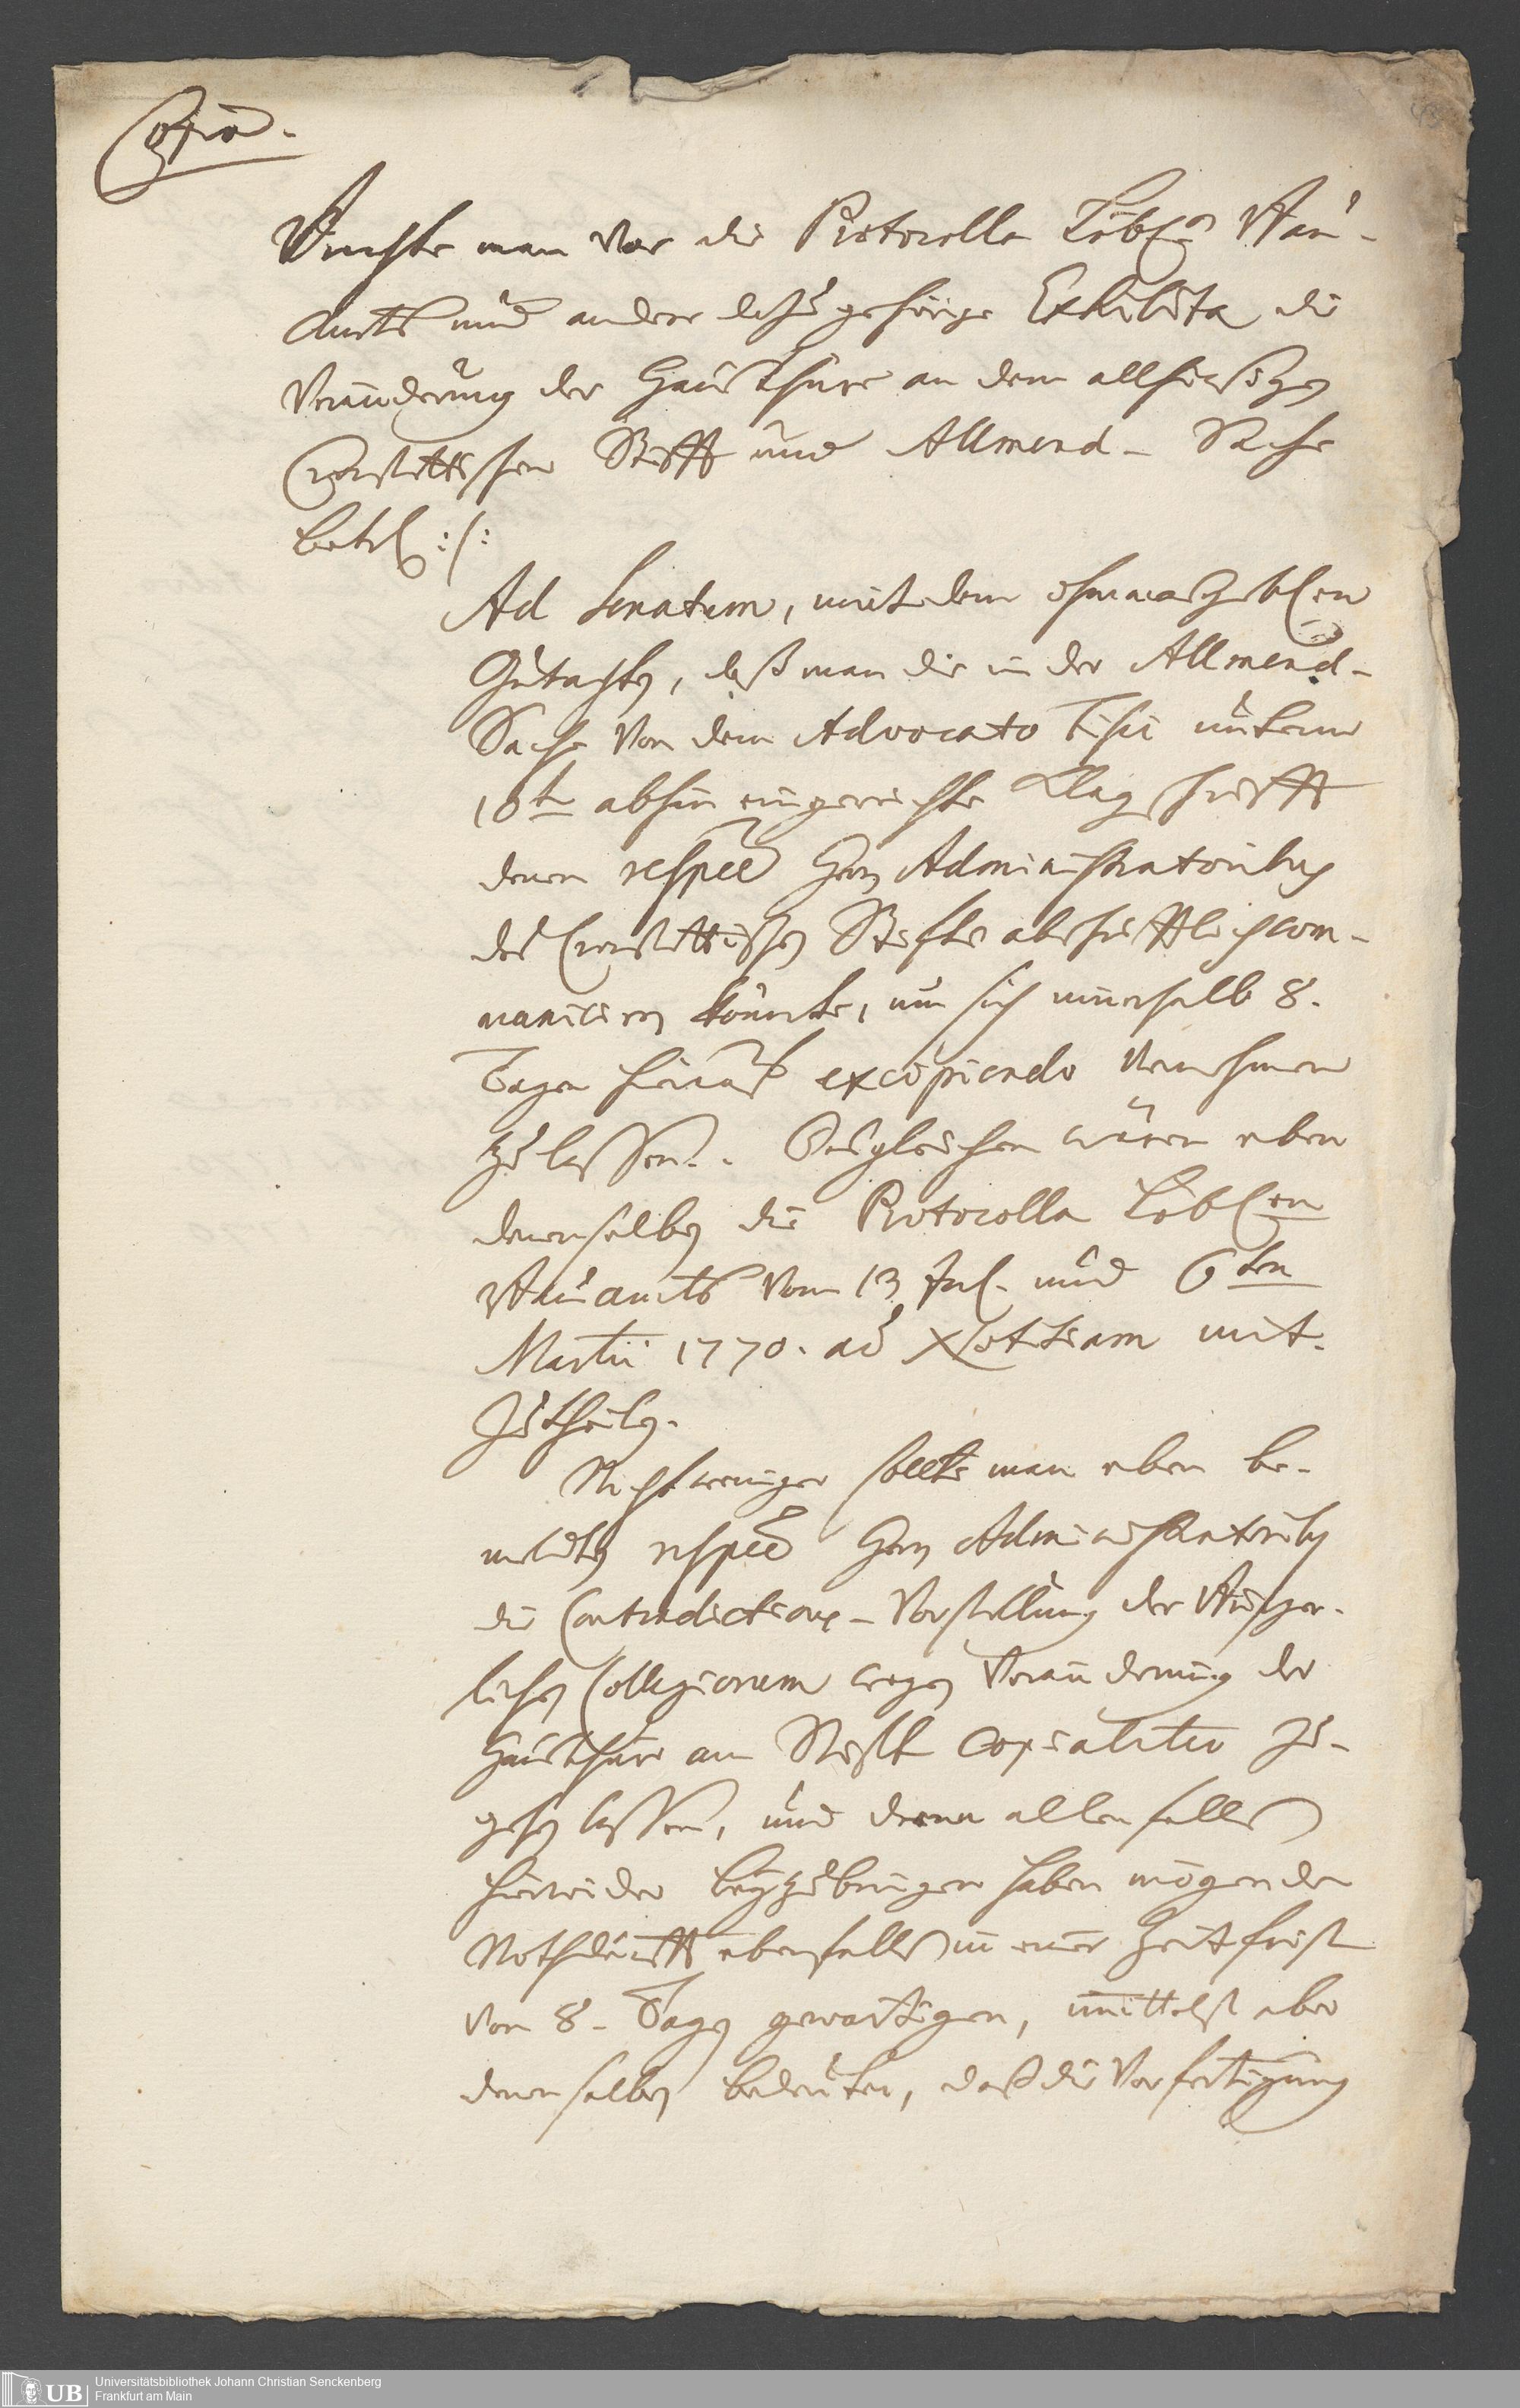 Copia.
man vor die Protocolla Löbl. Bau-
Amts und andere dazu gehörige Exhibita die
Veränderung der Hausthüre an dem allhiesigen
Cronstettischen Stifft und Allmend-Sache
betrl. :/:
Ad Senatum, mit dem ohnmasgeblen
Gutachten, daß man die in der Allmend-
Sache von dem Advocato unterm
18t. abhin eingereichte Klagschrifft
denen respve Hern Administratoribus
des Cronstettischen Stiffts abschrifftlich com-
municiren könnte, um sich innerhalb 8.
Tagen hierauf excipiendo vernehmen
zu lassen. Desgleichen wären eben
denenselben die Protocolla Löblen
Bauamts vom 13 Jul. und 6ten
Martii 1770. ad Notitiam mit-
zutheilen.
Nicht weniger sollte man eben be-
meldten respve Hern Administratoribus
die Contradictions-Vorstellung der Bürger-
lichen Collegiorum wegen Veränderung der
Hausthüre am Stifft Copialiter zu-
gehen lassen, und deren allenfalls
hierwider beyzubringen haben mögende
Nothdurfft ebenfalls in einer Zeitfrist
von 8. Tagen gewärtigen, immittelst aber
denenselben bedeuten, daß die Verfertigung
UB
Universitätsbibliothek Johann Christian Senckenberg
Frankfurt am Main